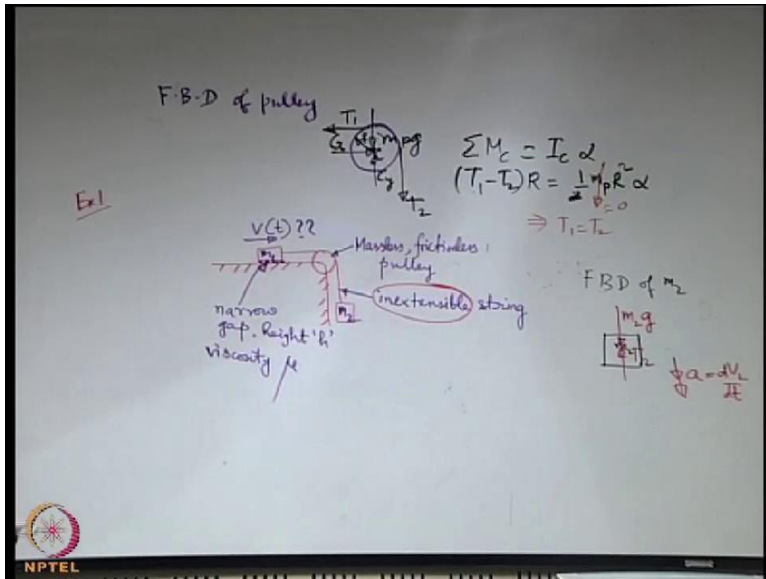 F.B.D of pulley
T1
mpg
Cy
T2
ΣMc = Ic α
(T1-T2)R = 1/2 mpR² α
=0
⇒ T1=T2
Ex1
V(t)??
m1
Massless, frictionless
pulley
inextensible string
m2
narrow
gap. height 'h'
viscosity μ
FBD of m2
m2g
T2
a = dV2/dt
NPTEL